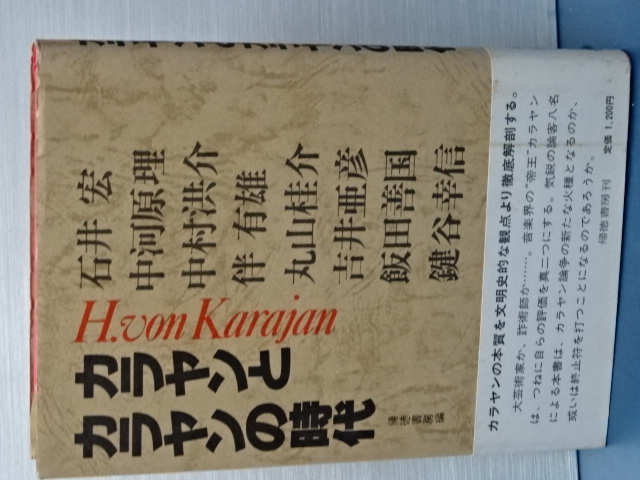 カラヤンと
カラヤンの時代
帰徳書房編
H.von Karajan
石井 宏
中河原理
中村洪介
伴 有雄
丸山桂介
吉井亜彦
飯田善国
鍵谷幸信
カラヤンの本質を文明史的な観点より徹底解剖する。
大芸術家か、詐術師か……。音楽界の“帝王”カラヤン
は、つねに自らの評価を真二つにする。気鋭の論客八名
による本書は、カラヤン論争の新たな火種となるのか、
或いは終止符を打つことになるのであろうか。
帰徳書房刊
定価 1,200円